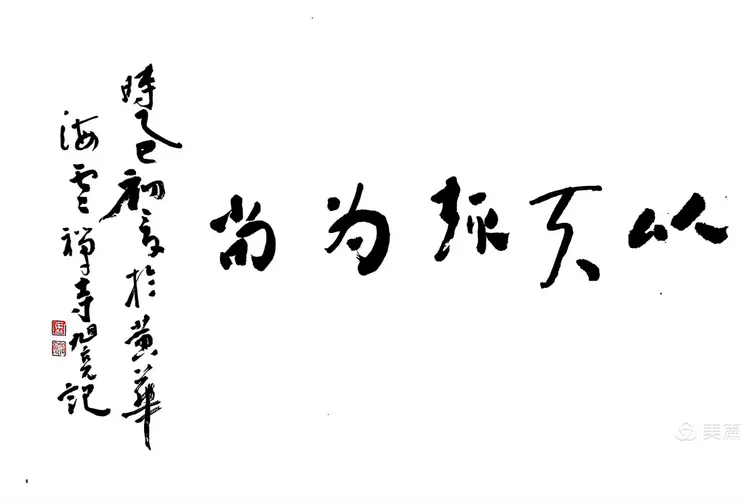 以天趣为尚
時乙巳初夏於黄華
海雲禪寺旭亮記
美篇